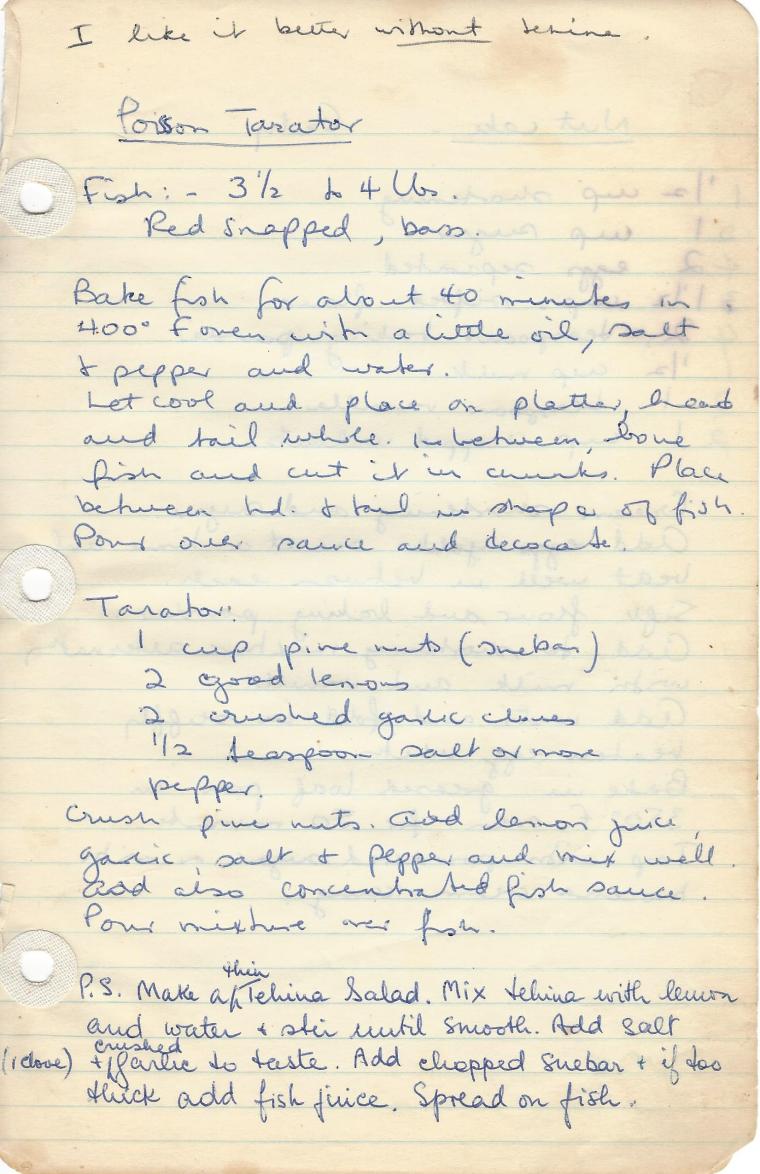 I like it better without tehina.
Poisson Tarator
Fish:- 3 1/2 to 4 lbs.
Red Snapped, bass.
Bake fish for about 40 minutes in
400° F oven with a little oil, salt
& pepper and water.
Let cool and place on platter, head
and tail whole. In between, bone
fish and cut it in chunks. Place
between hd. & tail in shape of fish.
Pour over sauce and decorate.
Tarator:
1 cup pine nuts (snebar)
2 good lemons
2 crushed garlic cloves
1/2 teaspoon salt or more
pepper.
Crush pine nuts. Add lemon juice,
garlic, salt & pepper and mix well.
Add also concentrated fish sauce.
Pour mixture over fish.
P.S. Make a thin Tehina Salad. Mix tehina with lemon
and water & stir until smooth. Add salt
(1 clove) + crushed garlic to taste. Add chopped snebar + if too
thick add fish juice. Spread on fish.